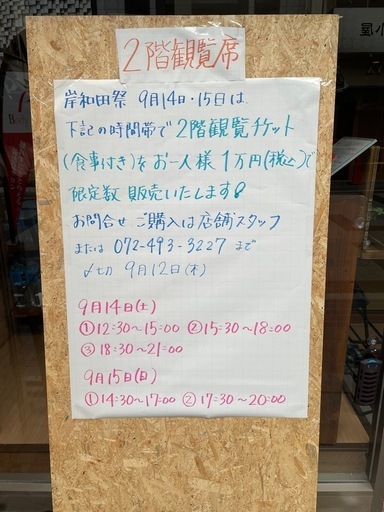 2階観覧席
岸和田祭 9月14日・15日は
下記の時間帯で2階観覧チケット
(食事付き)をお一人様1万円(税込)で
限定数 販売いたします!
お問合せ ご購入は店舗スタッフ
または 072-493-3227 まで
〆切 9月12日(木)
9月14日(土)
①12:30~15:00 ②15:30~18:00
③18:30~21:00
9月15日(日)
①14:30~17:00 ②17:30~20:00